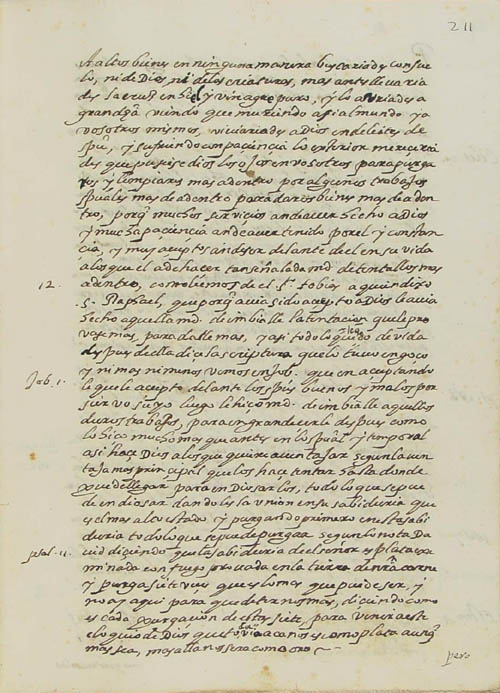 211
a altos bienes en ninguna manera buscariades consue
lo, ni de Dios ni de las criaturas, mas antes llevaria
des la cruz en hiel y vinagre puro, y lo avriades a
grand viendo que muriendo asi al mundo y a
vosotros mismos, viviriades a Dios en deleites de
spu, y sufriendo con paciencia lo exterior mereceria
des que pusiese dios los ojos en vosotros para purga
ros y limpiaros mas adentro por algunos trabajos
spuales mas de adentro para daros bienes mas de aden
tro, porq muchos servicios an de aver hecho a dios
y mucha paciencia an de aver tenido por el y constan
cia, y muy aceptos an de ser delante de el en su vida
a los que el a de hacer tan señalada md. de tentallos mas
12. adentro, como leemos de el sto tobias a quien dixo
s. Raphael, que porq avia sido acepto a Dios le avia
hecho aquella md. de imbialle la tentacion que le pro
vase mas, para dalle mas, y asi todo lo q le quedo de vida
despues de ella dice la scriptura que lo tuvo en goço
Job. 1. y ni mas ni menos vemos en Job. que en aceptando
le que le acepto delante los spus buenos y malos por
siervo suyo luego le hiço md. de imbialle aquellos
duros trabajos, para engrandecerle despues como
lo hiço mucho mas que antes en lo spual y temporal
asi hace Dios a los que quiere aventajar segun la ven
taja mas principal que los hace tentar hasta donde
puede llegar para endiosarlos, todo lo que se pue
de endiosar dandoles la union en su sabiduria que
es el mas alto estado y purgando primero en esta sabi
duria todo lo que se puede purgar segun lo nota Da
psal. 11. vid diciendo que la sabiduria del señor es plata exa
minada con fuego provada en la tierra de nra carne
y purgada siete veces que es lo mas que puede ser, y
no ay aqui para que detenernos mas, diciendo como
es cada purgacion de estas siete, para venir a este
eloquio de Dios que todavia aca nos es como plata aunq
mas sea, mas alla nos sera como oro
pero